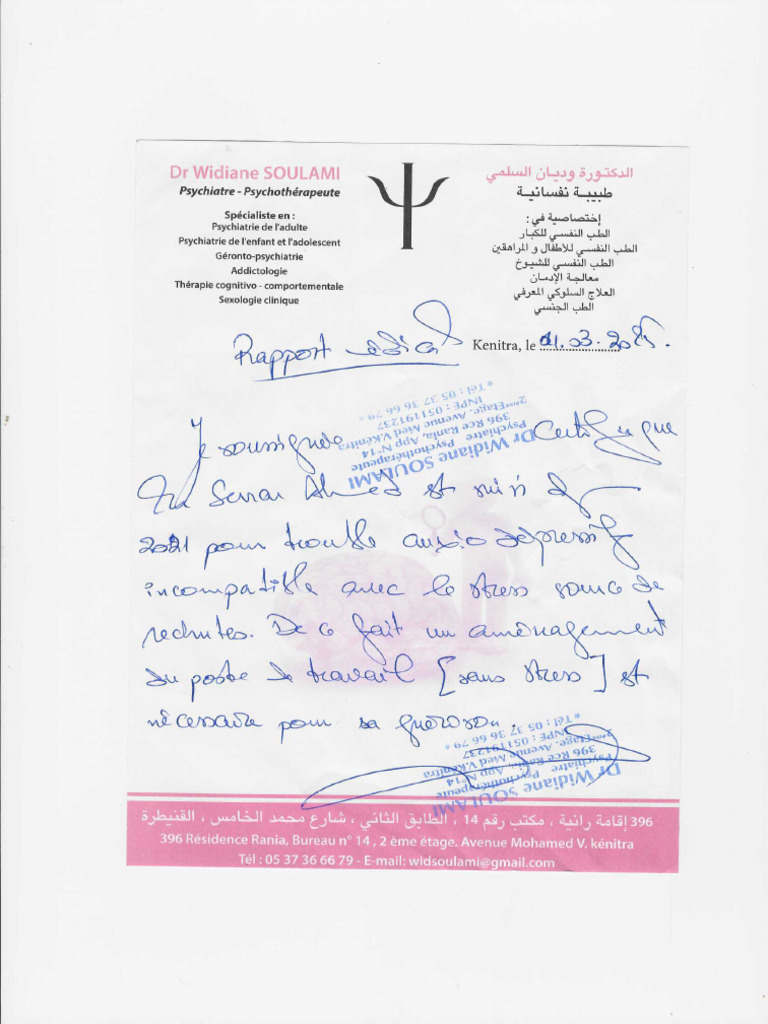 Dr Widiane SOULAMI
Psychiatre - Psychothérapeute
Spécialiste en :
Psychiatrie de l'adulte
Psychiatrie de l'enfant et l'adolescent
Géronto-psychiatrie
Addictologie
Thérapie cognitivo - comportementale
Sexologie clinique
الدكتورة وديان السلمي
طبيبة نفسانية
إختصاصية في :
الطب النفسي للكبار
الطب النفسي للأطفال و المراهقين
الطب النفسي للشيوخ
معالجة الإدمان
العلاج السلوكي المعرفي
الطب الجنسي
Rapport médical
Kenitra, le 11.03.2025.
Je soussignée
Dr Widiane SOULAMI
Psychiatre Psychothérapeute
396 Rce Rania, App N°14
2ème Etage. Avenue Med V.Kénitra
INPE : 051191237
* Tél : 05 37 36 66 79 *
Certifie que
Ahmed est suivi
2021 pour trouble anxio dépressif
incompatible avec le stress source de
rechutes. De ce fait un aménagement
du poste de travail [sans stress] est
nécessaire pour sa guérison.
Dr Widiane SOULAMI
Psychiatre Psychothérapeute
396 Rce Rania, App N°14
2ème Etage. Avenue Med V.Kénitra
INPE : 051191237
* Tél : 05 37 36 66 79 *
396 إقامة رانية ، مكتب رقم 14 ، الطابق الثاني ، شارع محمد الخامس ، القنيطرة
396 Résidence Rania, Bureau n° 14 , 2 ème étage. Avenue Mohamed V. kénitra
Tél : 05 37 36 66 79 - E-mail: widsoulami@gmail.com